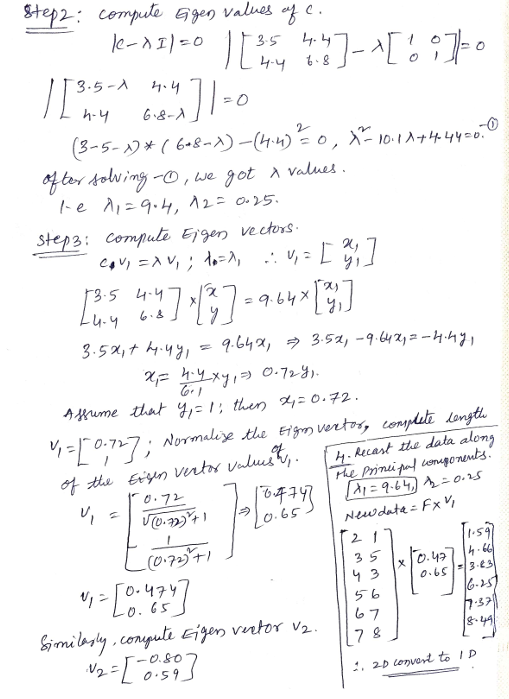 Step2: compute Eigen values of C.
|C-λI|=0 |[3.5 4.4 4.4 6.8]-λ[1 0 0 1]|=0
|[3.5-λ 4.4 4.4 6.8-λ]|=0
(3-5-λ)*(6.8-λ)-(4.4)²=0, λ²-10.1λ+4.44=0.-①
after solving -①, we got λ values.
i-e λ1=9.4, λ2=0.25.
Step3: compute Eigen vectors.
C.V1=λV1; λ=λ1 ∴ V1=[x1 y1]
[3.5 4.4 4.4 6.8]×[x y]=9.64×[x1 y1]
3.5x1+4.4y1=9.64x1 ⇒ 3.5x1-9.64x1=-4.4y1
x1=4.4/6.1×y1⇒0.72y1.
Assume that y1=1; then x1=0.72.
V1=[0.72 1]; Normalize the Eigen vector, complete length
of the Eigen vector values of V1.
V1=[0.72/√(0.72)²+1 1/(0.72)²+1]⇒[0.474 0.65]
V1=[0.474 0.65]
Similarly, compute Eigen vector V2.
V2=[-0.80 0.59]
4. Recast the data along
the principal components.
λ1=9.64, λ2=0.25
New data=F×V1
[2 1 3 5 4 3 5 6 6 7 7 8]×[0.47 0.65]=[1.59 4.66 3.83 6.25 7.37 8.49]
∴ 2D convert to 1D